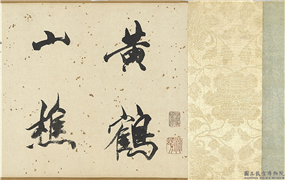 黃鶴
山樵
國立故宮博物院